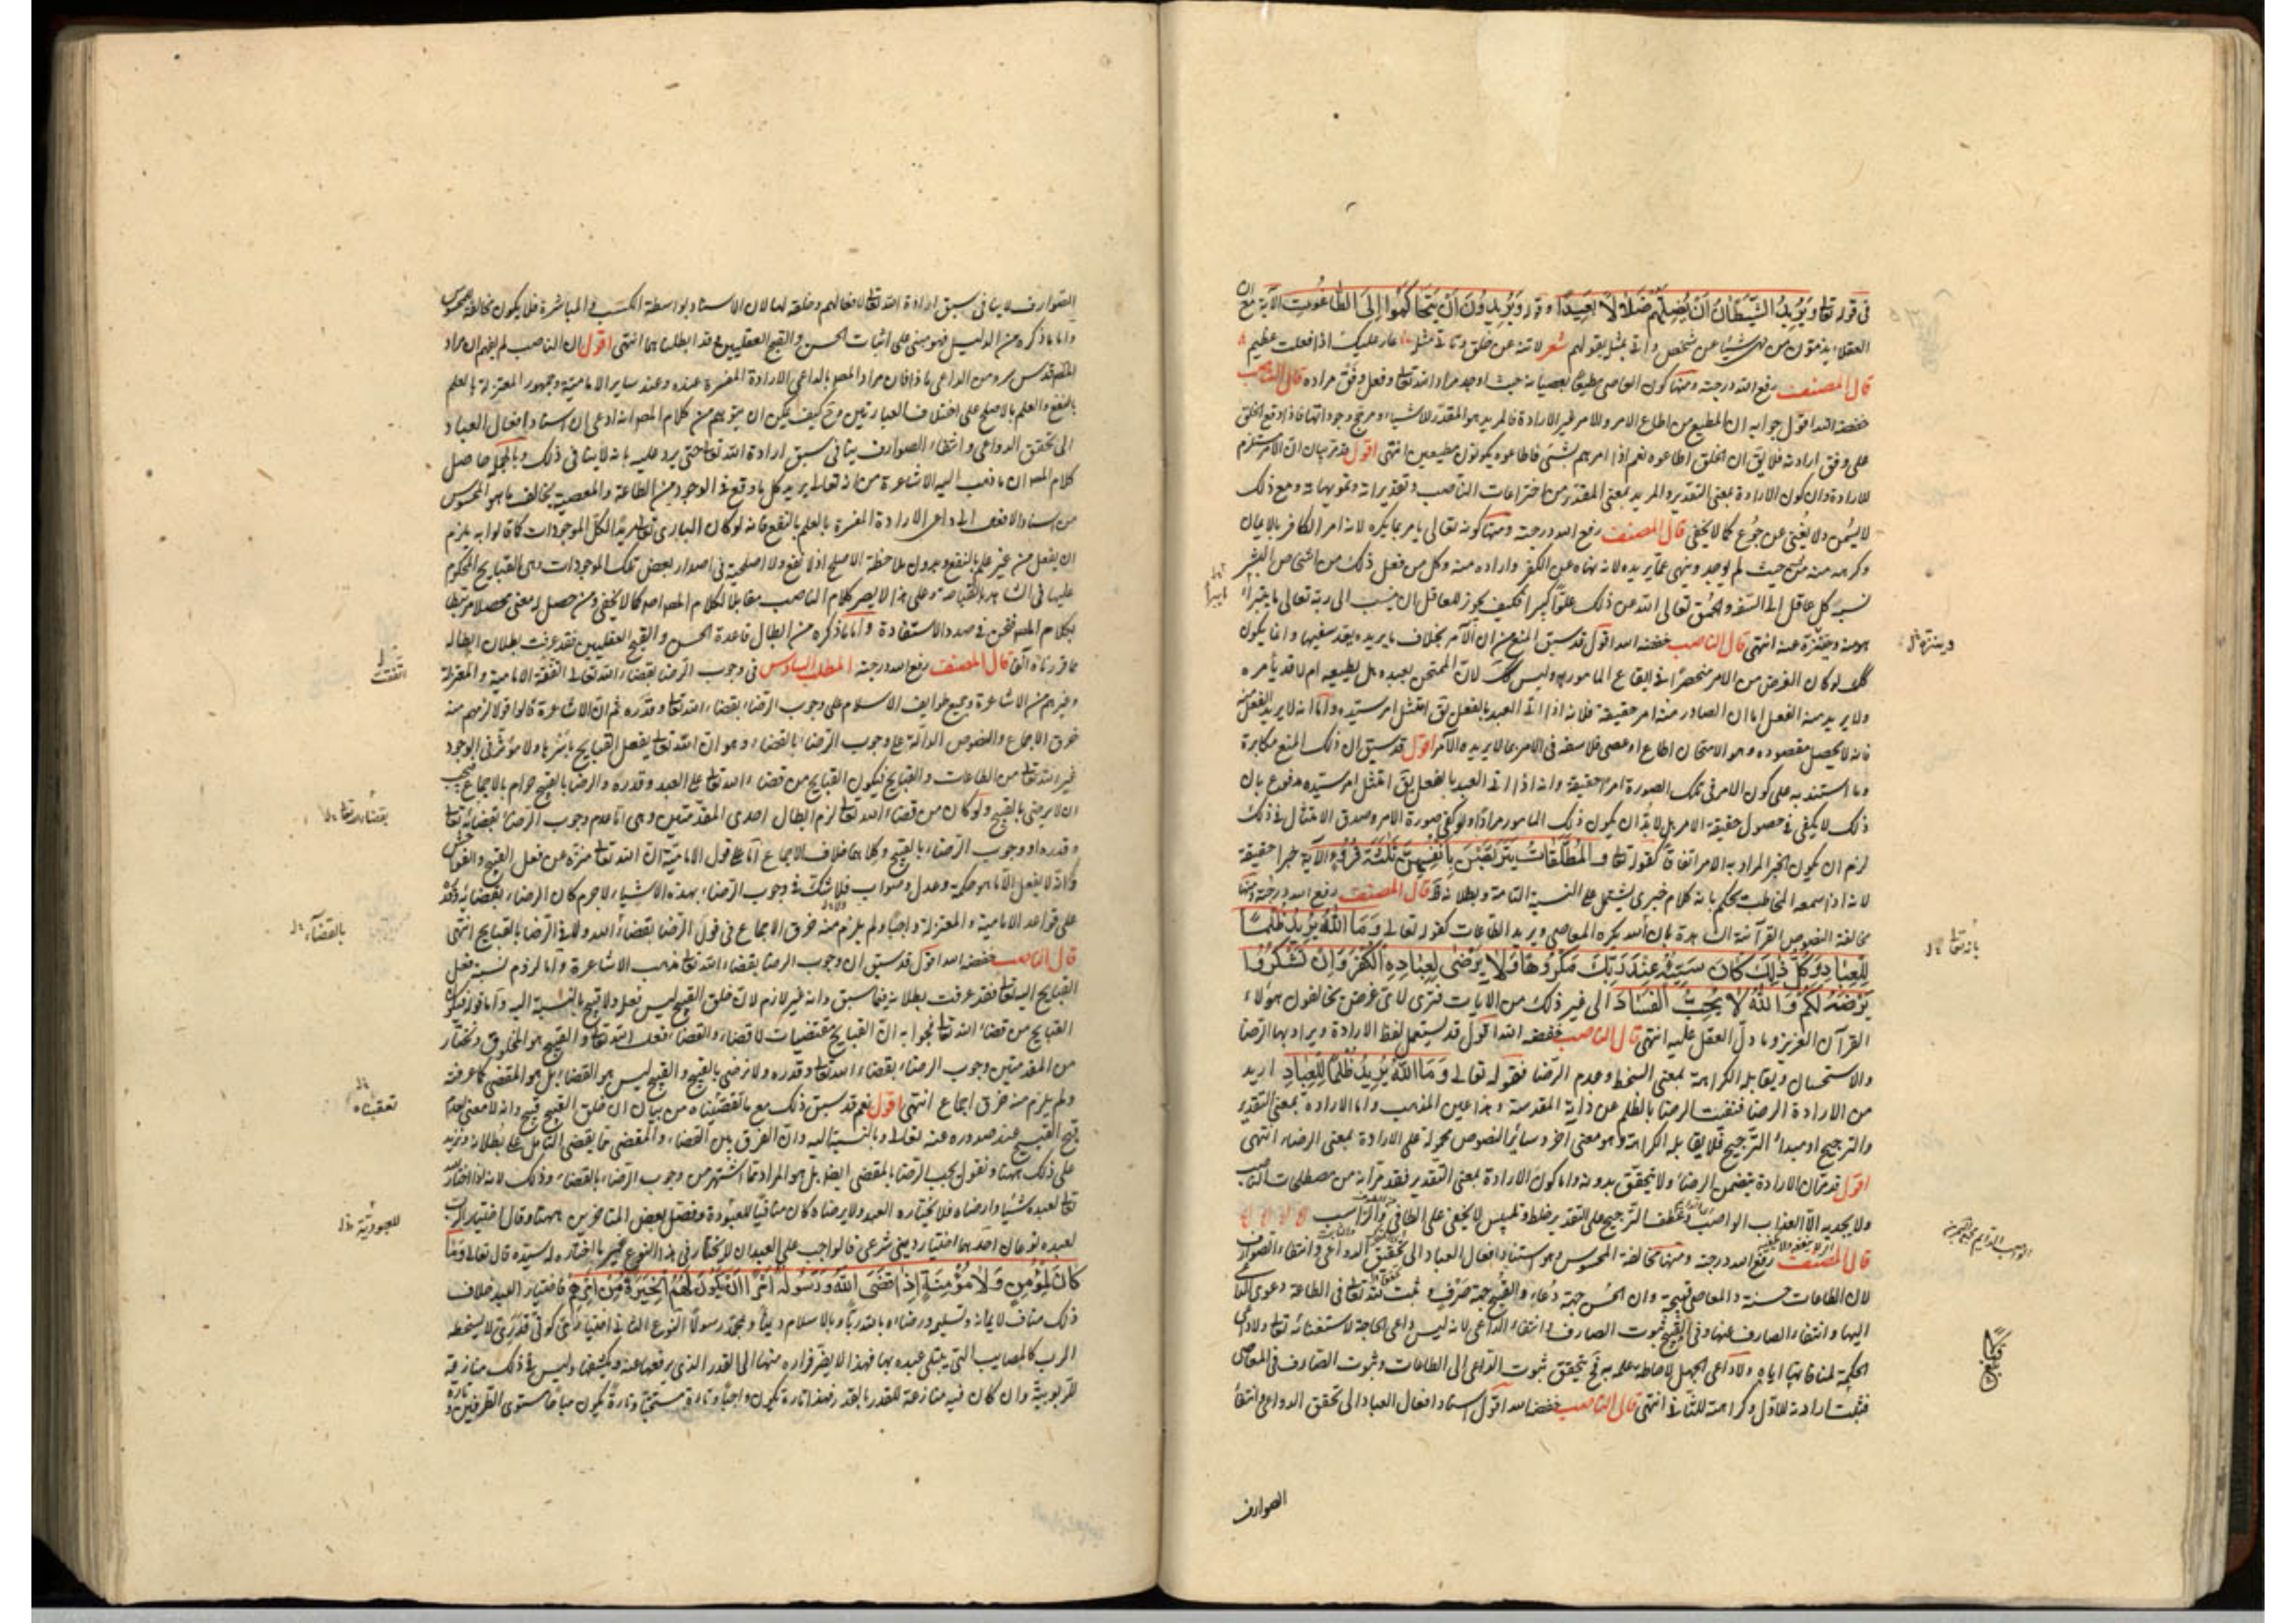 في قوله تعا ويريد الشيطان ان يضلهم ضلالا بعيدا وقوله ويريدون ان يتحاكموا الى الطاغوت الآية مع ان
العقلاء يذمون من نهى شيئا عن شخص واتى بمثله بقولهم شعر لا تنه عن خلق وتأتي مثله عار عليك اذا فعلت عظيم
قال المصنف رفع الله درجته ومنها كون العاصي مطيعا بعصيانه حيث اوجد مراد الله تعا وفعل وفق مراده قال الناصب
خفضه الله اقول جوابه ان المطيع من اطاع الامر والامر غير الارادة فالمريد هو المقدر للاشياء ومرجح وجوداتها فاذا وقع الخلق
على وفق ارادته فلا يق ان الخلق اطاعوه نعم اذا امرهم بشئ فاطاعوه يكونون مطيعين انتهى اقول قد مر بيان ان الامر مستلزم
للارادة وان كون الارادة بمعنى التقدير والمريد بمعنى المقدر من اختراعات الناصب وتقديراته وتمويهاته ومع ذلك
لا يسمن ولا يغني عن جوع كما لا يخفى قال المصنف رفع الله درجته ومنها كونه تعالى يامر بما يكره لانه امر الكافر بالايمان
وكرهه منه حيث لم يوجد وينهى عما يريده لانه نهاه عن الكفر واراده منه وكل من فعل ذلك من اشخاص البشر
نسبه كل عاقل الى السفه والحمق تعالى الله عن ذلك علوا كبيرا فكيف يجوز للعاقل ان ينسب الى ربه تعالى ما يتبرأ
هو منه ويتنزه عنه انتهى قال الناصب خفضه الله اقول قد سبق المنع من ان الآمر بخلاف ما يريده يعد سفيها وانما يكون
كك لو كان الغرض من الامر منحصرا في ايقاع المامور به وليس كك لان الممتحن لعبده هل يطيعه ام لا قد يأمره
ولا يريد منه الفعل اما ان الصادر منه امر حقيقة فلانه اذا اتى العبد بالفعل يق امتثل امر سيده واما انه لا يريد الفعل منه
فانه لا يحصل مقصوده وهو الامتحان اطاع او عصى فلا سفه في الامر بما لا يريده الآمر اقول قد سبق ان ذلك المنع مكابرة
وما استند به على كون الامر في تلك الصورة امرا حقيقة وانه اذا اتى العبد بالفعل يق امتثل امر سيده مدفوع بان
ذلك لا يكفي في حصول حقيقة الامر بل لا بد ان يكون ذلك المامور مرادا ولو كفى صورة الامر وصدق الامتثال في ذلك
لزم ان يكون الخبر المراد به الامر اتفاقا كقوله تعا والمطلقات يتربصن بانفسهن ثلثة قروء الآية خبرا حقيقة
لانه اذا سمعه المخاطب يحكم بانه كلام خبري يشتمل على النسبة التامة وبطلانه ظ قال المصنف رفع الله درجته ومنها
مخالفة النصوص القرآنية الشاهدة بان الله يكره المعاصي ويريد الطاعات كقوله تعالى وما الله يريد ظلما
للعباد وكل ذلك كان سيئه عند ربك مكروها ولا يرضى لعباده الكفر وان تشكروا
يرضه لكم والله لا يحب الفساد الى غير ذلك من الايات فترى لاى غرض يخالفون هؤلاء
القرآن العزيز وما دل العقل عليه انتهى قال الناصب خفضه الله اقول قد يستعمل لفظ الارادة ويراد بها الرضا
والاستحسان ويقابله الكراهة بمعنى السخط وعدم الرضا فقوله تعالى وما الله يريد ظلما للعباد اريد
من الارادة الرضا فنفت الرضا بالظلم عن ذاته المقدسة وهذا عين المذهب واما الارادة بمعنى التقدير
والترجيح او مبدأ الترجيح فلا يقابله الكراهة وهو معنى آخر وسائر النصوص محمولة على الارادة بمعنى الرضاء انتهى
اقول قد مر ان الارادة يتضمن الرضا ولا يتحقق بدونه واما كون الارادة بمعنى التقدير فقد مر انه من مصطلحات الناصب
ولا يجديه الا العذاب الواصب وعطف الترجيح على التقدير خلط وتلبيس لا يخفى على الطافي والراسب
قال المصنف رفع الله درجته ومنها مخالفة المحسوس وهو استناد افعال العباد الى تحقق الدواعي وانتفاء الصوارف
لان الطاعات حسنة والمعاصي قبيحة وان الحسن جهة دعاء والقبح جهة صرف فيثبت لله تعا في الطاعة دعوى الداعي
اليها وانتفاء الصارف عنها وفي القبيح ثبوت الصارف وانتفاء الداعي لانه ليس داعي الحاجة لاستغنائه تعا ولا داعي
الحكمة لمنافاتها اياه ولا داعي الجهل لاحاطة علمه به فح يتحقق ثبوت الداعي الى الطاعات وثبوت الصارف في المعاصي
فثبت ارادته للاول وكراهته للثاني انتهى قال الناصب خفضه الله اقول استناد افعال العباد الى تحقق الدواعي وانتفاء
الصوارف
وينزه
بانه تعا
الصوارف لا ينافي سبق ارادة الله تعا لافعالهم وخلقه لها لان الاسناد بواسطة الكسب والمباشرة فلا يكون مخالفة للمحسوس
واما ما ذكره من الدليل فهو مبني على اثبات الحسن والقبح العقليين وقد ابطلناهما انتهى اقول ان الناصب لم يفهم ان مراد
المصنف قدس سره من الداعي ماذا فان مراد المص بالداعي الارادة المفسرة عنده وعند ساير الامامية وجمهور المعتزلة بالعلم
بالنفع والعلم بالاصلح على اختلاف العبارتين وح كيف يمكن ان يتوهم من كلام المص انه ادعى ان استناد افعال العباد
الى تحقق الدواعي وانتفاء الصوارف ينافي سبق ارادة الله تعا حتى يرد عليه بانه لا ينافي ذلك وبالجملة حاصل
كلام المص ان ما ذهب اليه الاشاعرة من انه تعالى يريد كل ما وقع في الوجود من الطاعة والمعصية يخالف ما هو المحسوس
من اسناد الافعال الى داعي الارادة المفسرة بالعلم بالنفع فانه لو كان الباري تعا مريدا لكل الموجودات كما قالوا به يلزم
ان يفعل من غير علم بالنفع وبدون ملاحظة الاصلح اذ لا نفع ولا اصلحية في اصدار بعض تلك الموجودات وهي القبايح المحكوم
عليها في الشاهد بالقباحة وعلى هذا لا يصير كلام الناصب مقابلا لكلام المص اصلا كما لا يخفى ومن حصل له معنى محصلا مرتبطا
بكلام المص فنحن في صدد الاستفادة واما ما ذكره من ابطال قاعدة الحسن والقبح العقليين فقد عرفت بطلان ابطاله
بما قررناه آنفا قال المصنف رفع الله درجته المطلب السادس في وجوب الرضا بقضاء الله تعالى اتفقت الامامية والمعتزلة
وغيرهم من الاشاعرة وجميع طوايف الاسلام على وجوب الرضاء بقضاء الله تعا وقدره ثم ان الاشاعرة قالوا قولا لزمهم منه
خرق الاجماع والنصوص الدالة على وجوب الرضاء بالقضاء وهو ان الله تعا يفعل القبايح باسرها ولا مؤثر في الوجود
غير الله تعا من الطاعات والقبايح فيكون القبايح من قضاء الله تعا على العبد وقدره والرضا بالقبيح حرام بالاجماع فيجب
ان لا يرضى بالقبيح ولو كان من قضاء الله تعا لزم ابطال احدى المقدمتين وهي اما عدم وجوب الرضا بقضائه تعا
وقدره او وجوب الرضاء بالقبيح وكلاهما خلاف الاجماع اما على قول الامامية من ان الله تعا منزه عن فعل القبيح والفواحش
وانه لا يفعل الا ما هو حكمة وعدل وصواب فلا شك في وجوب الرضاء بهذه الاشياء لا جرم كان الرضاء بقضائه وقدره
على قواعد الامامية والمعتزلة واجبا ولم يلزم منه خرق الاجماع في قول الرضا بقضاء الله ولا في الرضا بالقبايح انتهى
قال الناصب خفضه الله اقول قد سبق ان وجوب الرضا بقضاء الله تعا مذهب الاشاعرة واما لزوم نسبة فعل
القبايح اليه تعا فقد عرفت بطلانه فيما سبق وانه غير لازم لان خلق القبيح ليس فعله ولا قبيح بالنسبة اليه واما قوله فيكون
القبايح من قضاء الله تعا فجوابه ان القبايح مقتضيات لا قضاء والقضاء فعل الله تعا والقبيح هو المخلوق ونختار
من المقدمتين وجوب الرضاء بقضاء الله تعا وقدره ولا نرضى بالقبيح والقبيح ليس هو القضاء بل هو المقضي كما عرفته
ولم يلزم منه خرق اجماع انتهى اقول نعم قد سبق ذلك مع ما تعقبناه من بيان ان خلق القبيح قبيح وانه لا معنى لعدم
قبح القبيح عند صدوره عنه تعالى وبالنسبة اليه وان الفرق بين القضاء والمقضي مما يقضي التأمل على بطلانه ونزيد
على ذلك ههنا ونقول يجب الرضا بالمقضي ايضا بل هو المراد مما اشتهر من وجوب الرضاء بالقضاء وذلك لانه اذا اختار الله
تعا لعبده شيئا وارضاه فلا يختاره العبد ولا يرضاه كان منافيا للعبودة وفصل بعض المتأخرين ههنا وقال اختيار الرب
لعبده نوعان احدهما اختيار ديني شرعي فالواجب على العبد ان لا يختار في هذا النوع غير ما اختاره له سيده قال تعالى وما
كان لمؤمن ولا مؤمنة اذا قضى الله ورسوله امرا ان يكون لهم الخيرة من امرهم فاختيار العبد خلاف
ذلك مناف لايمانه وتسليمه ورضاه بالله ربا وبالاسلام دينا وبمحمد رسولا النوع الثاني اختيار كوني قدري لا يسخطه
الرب كالمصايب التي يبتلي عبده بها فهذا لا يضر فراره منها الى القدر الذي يرفعها عنه ويكشفها وليس في ذلك منازعة
للربوبية وان كان فيه منازعة للقدر بالقدر فهذا تارة يكون واجبا وتارة مستحبا وتارة يكون مباحا مستوى الطرفين وتارة
اتفقت
بقضاء الله تعا
بالقضاء
تعقبناه
للعبودية